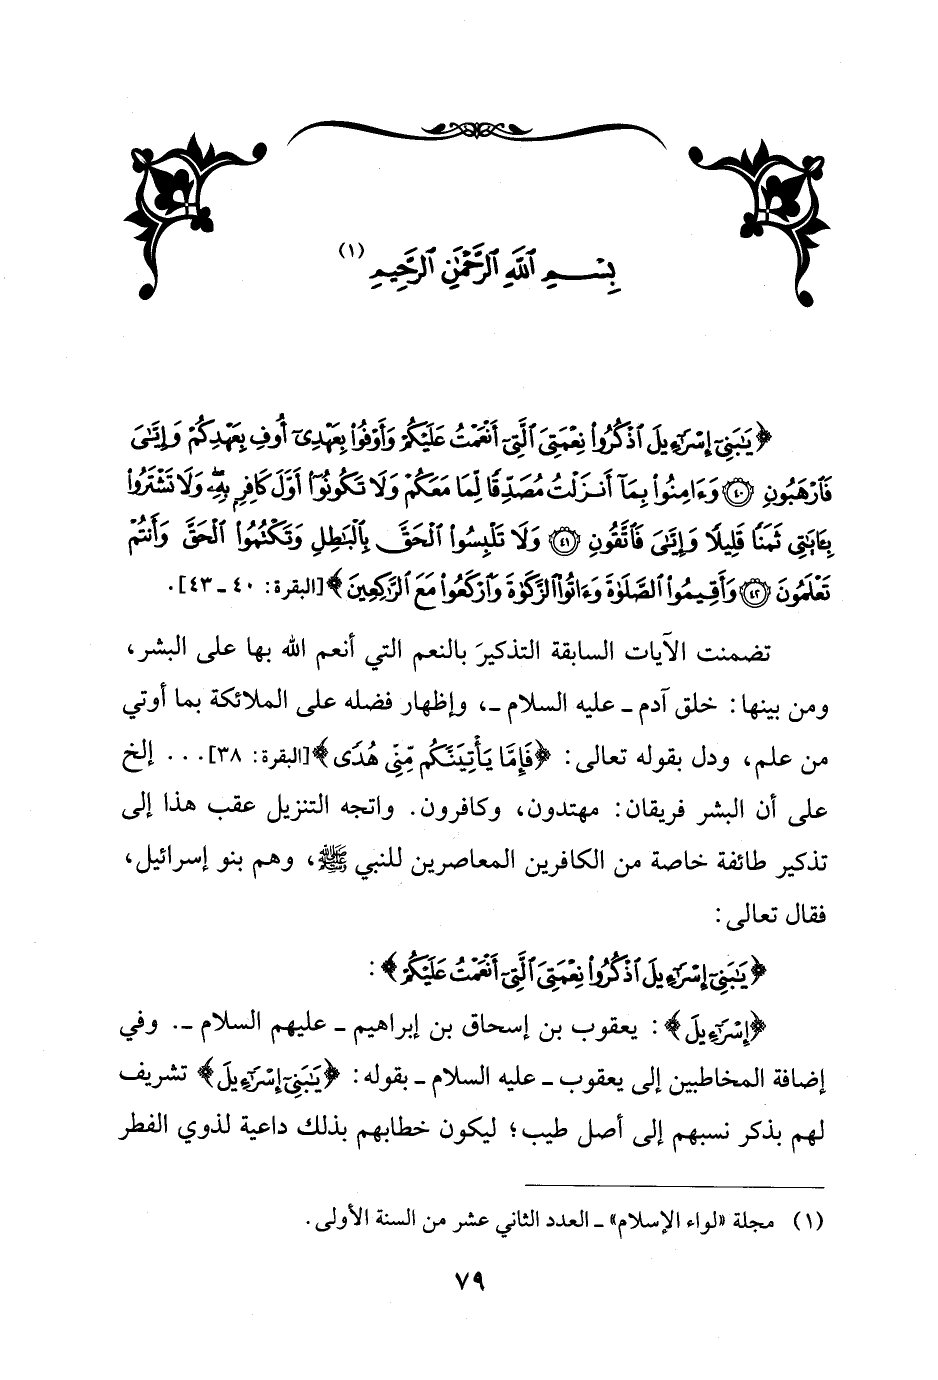 بِسْمِ ٱللَّهِ ٱلرَّحْمَٰنِ ٱلرَّحِيمِ (١)
﴿يَٰبَنِىٓ إِسْرَٰٓءِيلَ ٱذْكُرُوا۟ نِعْمَتِىَ ٱلَّتِىٓ أَنْعَمْتُ عَلَيْكُمْ وَأَوْفُوا۟ بِعَهْدِىٓ أُوفِ بِعَهْدِكُمْ وَإِيَّٰىَ
فَٱرْهَبُونِ ٤٠ وَءَامِنُوا۟ بِمَآ أَنزَلْتُ مُصَدِّقًا لِّمَا مَعَكُمْ وَلَا تَكُونُوٓا۟ أَوَّلَ كَافِرٍۭ بِهِۦ وَلَا تَشْتَرُوا۟
بِـَٔايَٰتِى ثَمَنًا قَلِيلًا وَإِيَّٰىَ فَٱتَّقُونِ ٤١ وَلَا تَلْبِسُوا۟ ٱلْحَقَّ بِٱلْبَٰطِلِ وَتَكْتُمُوا۟ ٱلْحَقَّ وَأَنتُمْ
تَعْلَمُونَ ٤٢ وَأَقِيمُوا۟ ٱلصَّلَوٰةَ وَءَاتُوا۟ ٱلزَّكَوٰةَ وَٱرْكَعُوا۟ مَعَ ٱلرَّٰكِعِينَ﴾ [البقرة: ٤٠ ـ ٤٣].
تضمنت الآيات السابقة التذكيرَ بالنعم التي أنعم الله بها على البشر،
ومن بينها: خلق آدم ـ عليه السلام ـ، وإظهار فضله على الملائكة بما أوتي
من علم، ودل بقوله تعالى: ﴿فَإِمَّا يَأْتِيَنَّكُم مِّنِّى هُدًى﴾ [البقرة: ٣٨]... إلخ
على أن البشر فريقان: مهتدون، وكافرون. واتجه التنزيل عقب هذا إلى
تذكير طائفة خاصة من الكافرين المعاصرين للنبي ﷺ، وهم بنو إسرائيل،
فقال تعالى:
﴿يَٰبَنِىٓ إِسْرَٰٓءِيلَ ٱذْكُرُوا۟ نِعْمَتِىَ ٱلَّتِىٓ أَنْعَمْتُ عَلَيْكُمْ﴾:
﴿إِسْرَٰٓءِيلَ﴾: يعقوب بن إسحاق بن إبراهيم ـ عليهم السلام ـ. وفي
إضافة المخاطبين إلى يعقوب ـ عليه السلام ـ بقوله: ﴿يَٰبَنِىٓ إِسْرَٰٓءِيلَ﴾ تشريف
لهم بذكر نسبهم إلى أصل طيب؛ ليكون خطابهم بذلك داعية لذوي الفطر
(١) مجلة «لواء الإسلام» ـ العدد الثاني عشر من السنة الأولى.
٧٩